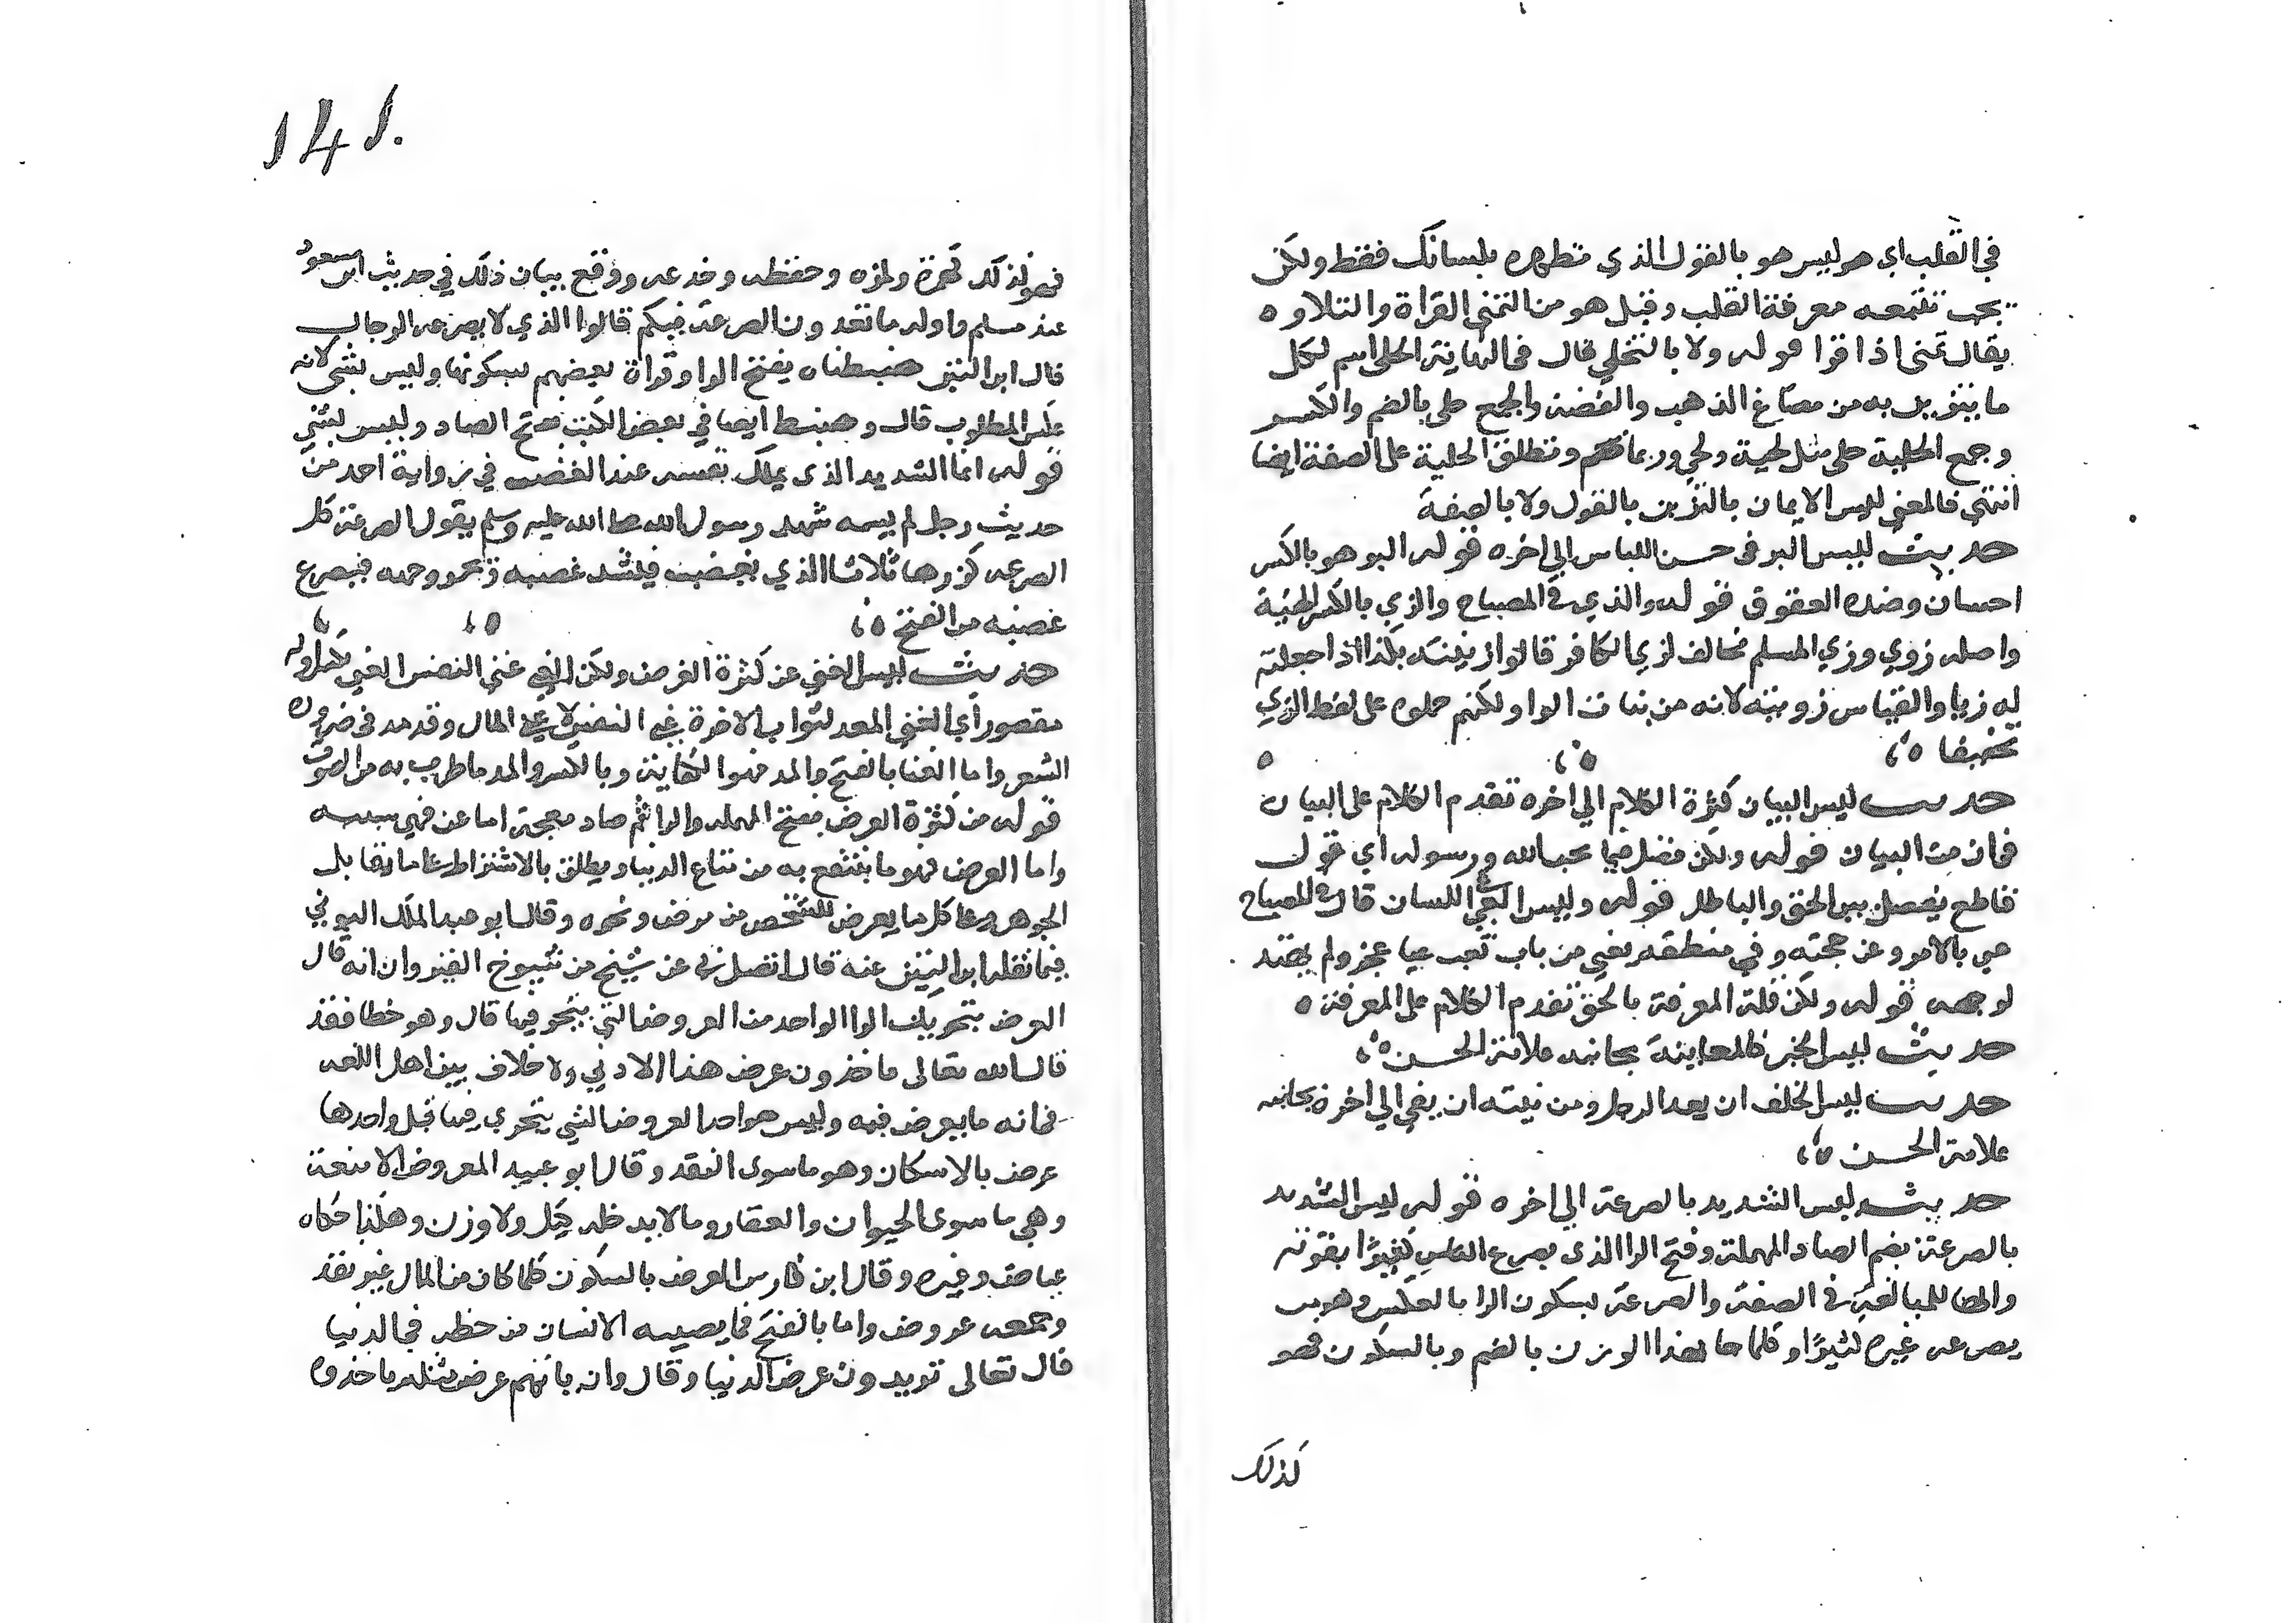 في القلب اي هو ليس هو بالقول الذي تظهره بلسانك فقط ولكن
يجب تتبعه معرفة القلب وقيل هو من التمني القراة والتلاوه
يقال تمنى اذا قرا قوله ولا بالتحلي قال في النهاية الحلي اسم لكل
ما يتزين به من مصاغ الذهب والفضة والجمع حلي بالضم والكسر
وجمع الحلية حلي مثل لحية ولحي وربما ضم وتطلق الحلية على الصفة ايضا
انتهي فالمعني ليس الايمان بالتزين بالقول ولا بالصفة
حديث ليس البر في حسن اللباس الي اخره قوله البر هو بالكسر
احسان وضده العقوق قوله والذي في المصباح والزي بالكسر الهيئة
واصله زوي وزي المسلم مخالف لزي الكافر قالوا زينته بكذا اذا جعلته
له زيا والقياس زويته لانه من بنات الواو لكنهم حملوه على لفظ الزي
تخفيفا ٥
حديث ليس البيان كثرة الكلام الي اخره تقدم الكلام على البيان
في ان من البيان قوله ولكن فصل فيما يحب الله ورسوله اي قول
قاطع يفصل بين الحق والباطل قوله وليس العي عي اللسان قال في المصباح
عي بالامر وعن حجته وفي منطقه يعي من باب تعب عيا عجز ولم يهتد
لوجهه قوله ولكن قلة المعرفة بالحق تقدم الكلام على المعرفة ٥
حديث ليس الخبر كالمعاينة بجانبه علامة الحسن ٥
حديث ليس الخلف ان يعد الرجل ومن نيته ان يفي الي اخره بجانبه
علامة الحسن ٥
حديث ليس الشديد بالصرعة الي اخره قوله ليس الشديد
بالصرعة بضم الصاد المهملة وفتح الرا الذي يصرع الناس كثيرا بقوته
والها للمبالغة في الصفة والصرعة بسكون الرا بالعكس وهو من
يصرعه غيره كثيرا وكلما جا بهذا الوزن بالضم وبالسكون فهو
كذلك
141
فهو كذلك كهمزة ولمزه وحفظه وخدعه ووقع بيان ذلك في حديث ابن مسعود
عند مسلم واوله ما تعدون الصرعة فيكم قالوا الذي لا يصرعه الرجال
قال ابن التين ضبطناه بفتح الرا وقراة بعضهم بسكونها وليس بشي لانه
عكس المطلوب قال وضبط ايضا في بعض الكتب بفتح الصاد وليس بشي
قوله انما الشديد الذي يملك نفسه عند الغضب في رواية احمد من
حديث رجل لم يسمه شهد رسول الله صلى الله عليه وسلم يقول الصرعة كل
الصرعه كررها ثلاثا الذي يغضب فيشتد غضبه ويحمر وجهه فيصرع
غضبه من الفتح ٥
حديث ليس الغني عن كثرة العرض ولكن الغني غني النفس الغني بكسر اوله
مقصور اي الغني المعد لثواب الاخرة غني النفس لا غني المال وقد مد في ضرورة
الشعر واما الغنا بالفتح والمد فهو الكفاية وبالكسر والمد ما طرب به من الصوت
قوله من كثرة العرض بفتح المهملة والرا ثم ضاد معجمة اما عن فهي سببيه
واما العرض فهو ما ينتفع به من متاع الدنيا ويطلق بالاشتراط على ما يقابل
الجوهر وعلى كل ما يعرض للشخص من مرض ونحوه وقال ابو عبد الملك البوني
فيما نقله ابن التين عنه قال اتصل بي عن شيخ من شيوخ القيروان انه قال
العرض بتحريك الرا الواحد من العروض التي يتجر فيها قال وهو خطا فقد
قال الله تعالى ياخذون عرض هذا الادني ولا خلاف بين اهل اللغه
في انه ما يعرض فيه وليس هو احد العروض التي يتجري فيها قبل واحدها
عرض بالاسكان وهو ما سوى النقد وقال ابو عبيد العروض الامتعة
وهي ما سوى الحيوان والعقار وما لا يدخله كيل ولا وزن وهكذا حكاه
عياض وغيره وقال ابن فارس العرض بالسكون كلما كان من المال غير نقد
وجمعه عروض واما بالفتح فما يصيبه الانسان من حظه في الدنيا
قال تعالى تريدون عرض الدنيا وقال وان ياتهم عرض مثله ياخذوه